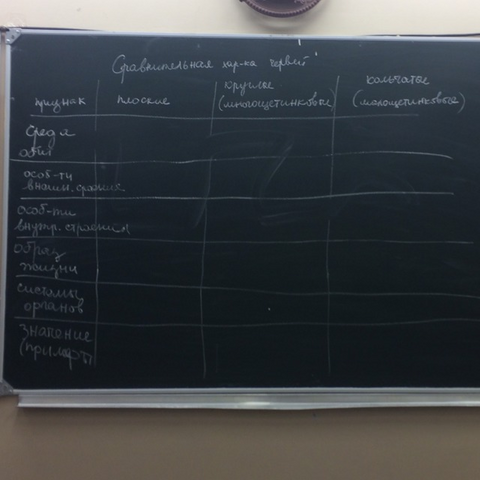 Сравнительная хар-ка червей
признак
плоские
круглые
(многощетинковые)
кольчатые
(малощетинковые)
среда
обит
особ-ти
внешн. строения
особ-ти
внутр. строения
образ
жизни
системы
органов
значение
(примеры)